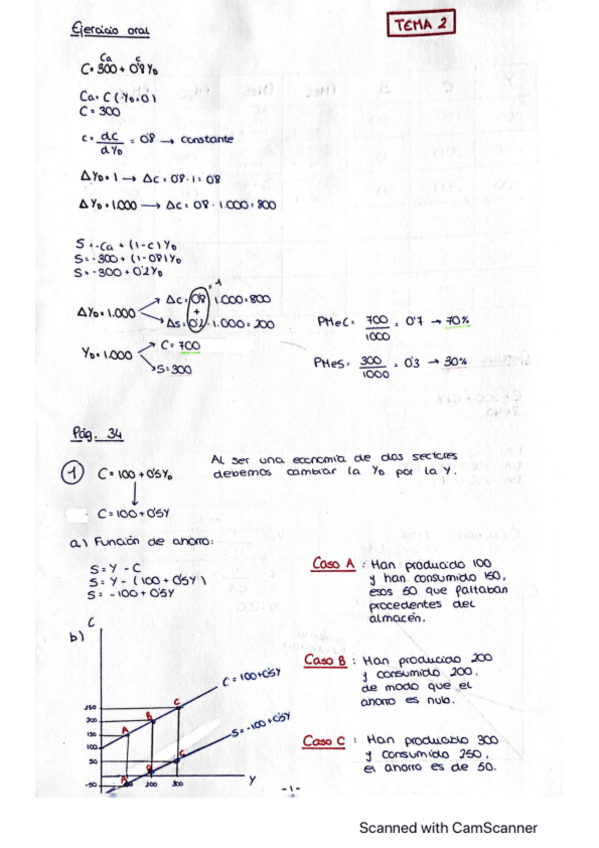 Ejercicio oral
TEMA 2
Ca c
C = 300 + 0'8 YD
Ca = C (YD = 0)
C = 300
c = dC/dYD = 0'8 → constante
ΔYD = 1 → ΔC = 0'8 · 1 = 0'8
ΔYD = 1.000 → ΔC = 0'8 · 1.000 = 800
S = -Ca + (1-c) YD
S = -300 + (1-0'8) YD
S = -300 + 0'2 YD
= 1
ΔYD = 1.000
ΔC = 0'8 · 1.000 = 800
+
ΔS = 0'2 · 1.000 = 200
YD = 1.000
C = 700
S = 300
PMeC = 700/1000 = 0'7 → 70%
PMeS = 300/1000 = 0'3 → 30%
Pág. 34
1 C = 100 + 0'5 YD
↓
C = 100 + 0'5Y
Al ser una economía de dos sectores
debemos cambiar la YD por la Y.
a.) Función de ahorro:
S = Y - C
S = Y - (100 + 0'5Y)
S = -100 + 0'5Y
Caso A : Han producido 100
y han consumido 150,
esos 50 que faltaban
procedentes del
almacén.
b)
C
C = 100 + 0'5Y
S = -100 + 0'5Y
250
200
150
100
50
-50
A
B
C
A
B
C
100 200 300
Y
Caso B : Han producido 200
y consumido 200,
de modo que el
ahorro es nulo.
Caso C : Han producido 300
y consumido 250,
el ahorro es de 50.
-1-
Scanned with CamScanner